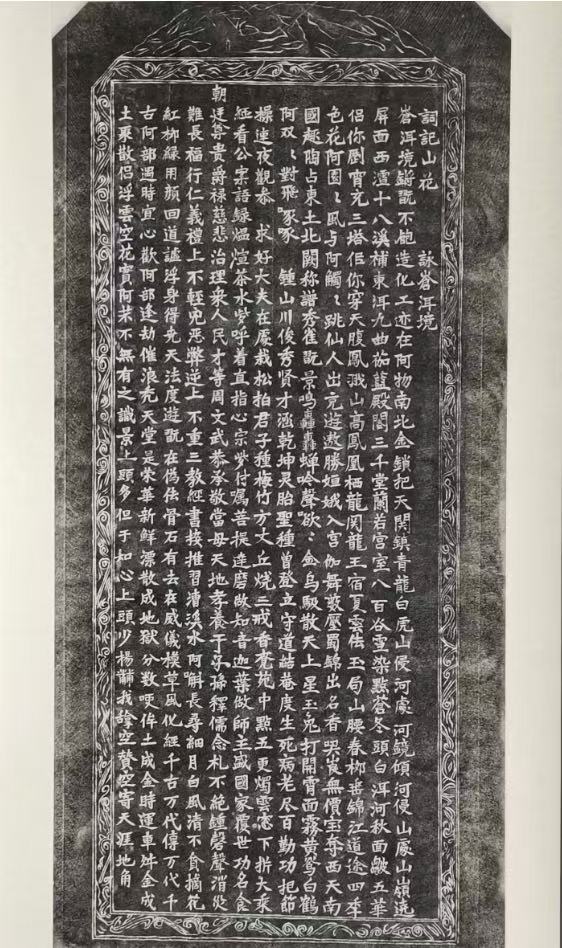 詞記山花 詠蒼洱境
蒼洱境鏘翫不飽造化工迹在阿物南北金鎖把天関鎮青龍白虎山侵河處河鏡傾河侵山廓山嶺遶
屏面西瀘十八溪補東洱九曲茄藍殿閣三千堂蘭若宮室八百谷雪染點蒼冬頭白洱河秋面皺五華
侶你劉宵充三塔佢你穿天腹鳳羽山高鳳凰栖龍関龍王宿夏雲佉玉局山腰春柳舊錦江道途四季
色花阿園〻風与阿觸〻跳仙人出遊遨勝姮娥入宮伽舞藪壓蜀錦出名香哭嵬無價宝奪西天南
國趣陶占東土北闕称譜秀雀翫景鳴轟轟蟬吟聲歛〻金烏駆散天上星玉兔打開霄面霧黄鴬白鶴
阿双〻對飛啄啄 鍾山川俊秀賢才涵乾坤灵胎聖種曾登立守道結菴度生死病老尽百勤功把節
操連夜觀叅 求好大夫在處栽松拍君子種梅竹方丈丘燒三戒香覺苑中點五更燭雲窓下折大乗
經看公案語録煴煊茶水㱔呼着直指心宗㱔付嘱菩提達磨做知音迦葉做師主盛國家覆世功名食
朝廷尊貴爵禄慈悲治理衆人民才等周文武恭承敬當母天地孝養干子孫釋儒念札不絶鍾磬聲消災
難長福行仁義禮上不輕児恶弊逆上不重三教經書接推習漕溪水阿斛長尋細月白風清不食摘花
紅柳緑用顔回道謐浮身得兊天法度遊翫在偽佉骨石有去在威儀模草風化經千古万代傳万代千
古阿部遇時宜心歡阿部逢劫催浪充天堂是荣華新鮮漂散成地獄 分數哽侔土成金時運車舛金成
土聚散侶浮雲空花實阿菜不無有之識景上頭多但于如心上頭少楊黼我詧空贊空寄天涯地角